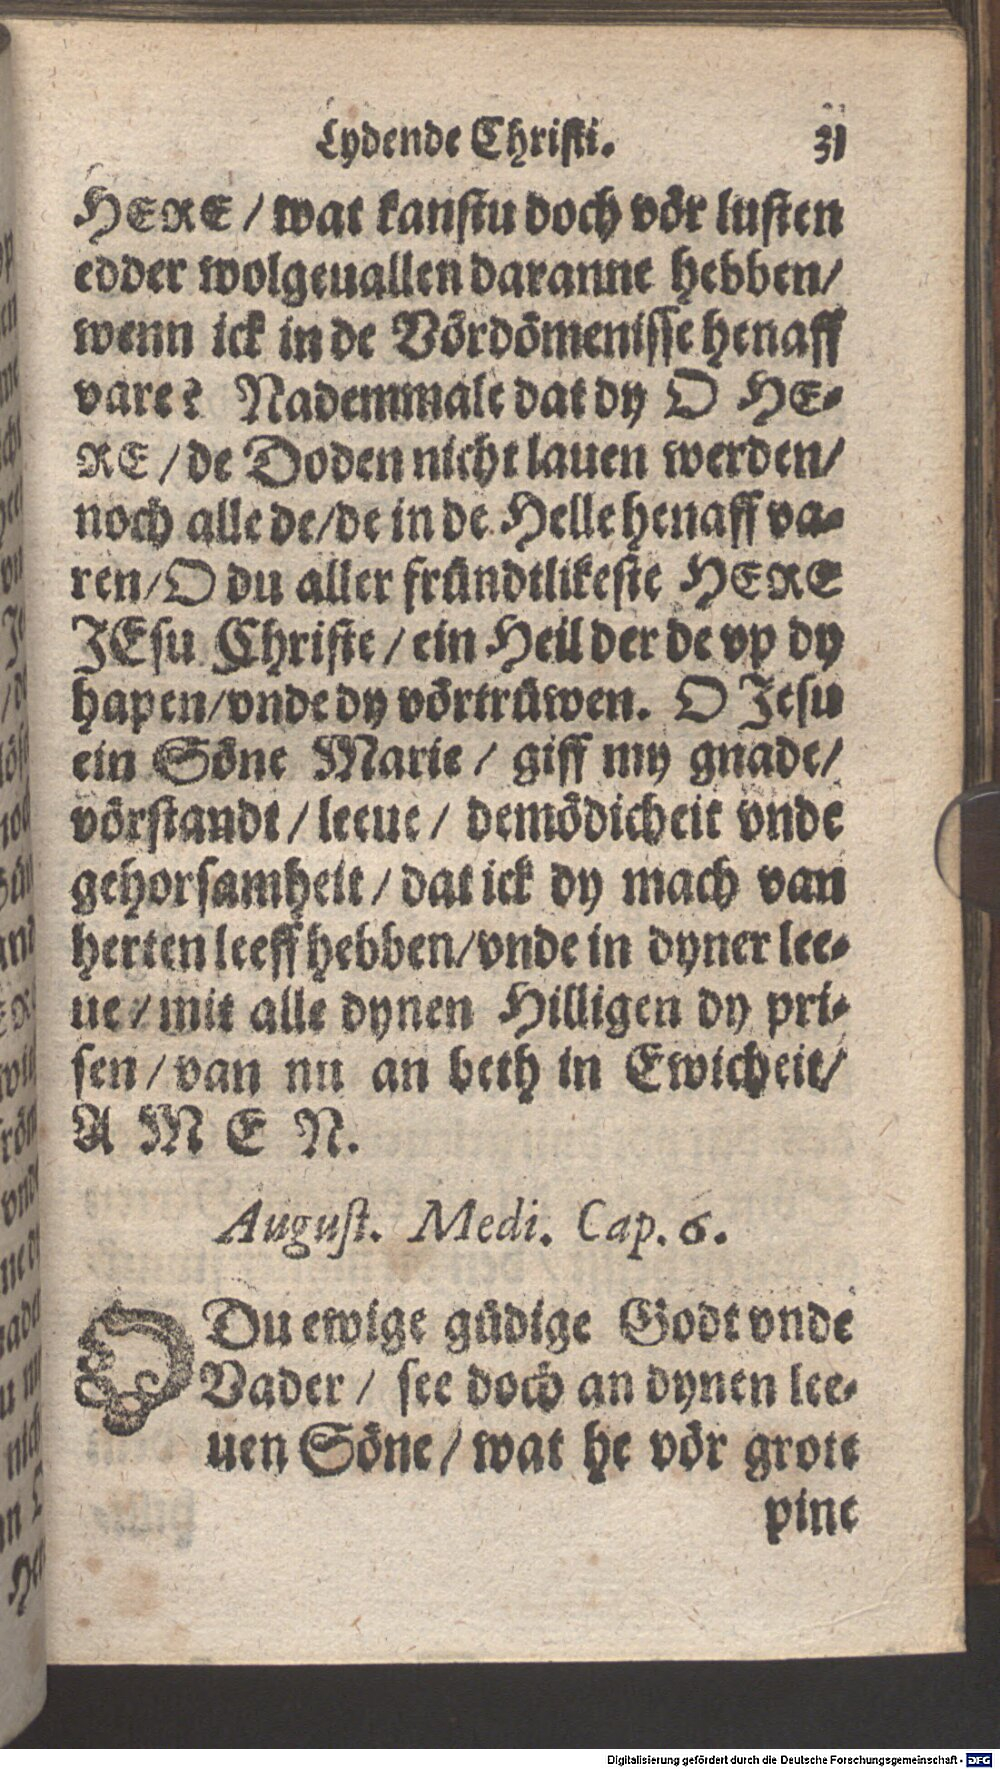 Lydende Christi. 31
HERE / wat kanstu doch vör lusten
edder wolgeuallen daranne hebben/
wenn ick in de Vördömenisse henaff
vare? Nademmale dat dy O HE-
RE / de Doden nicht lauen werden/
noch alle de/de in de Helle henaff va-
ren/O du aller fründtlikeste HERE
JEsu Christe / ein Heil der de vp dy
hapen/vnde dy vörtrüwen. O Jesu
ein Söne Marie / giff my gnade/
vörstandt / leeue / demödicheit vnde
gehorsamheit / dat ick dy mach van
herten leeff hebben/vnde in dyner lee-
ue / mit alle dynen Hilligen dy pri-
sen / van nu an beth in Ewicheit/
A M E N.
August. Medi. Cap. 6.
O Du ewige güdige Godt vnde
Vader / see doch an dynen lee-
uen Söne / wat he vör grote
pine
Digitalisierung gefördert durch die Deutsche Forschungsgemeinschaft - DFG